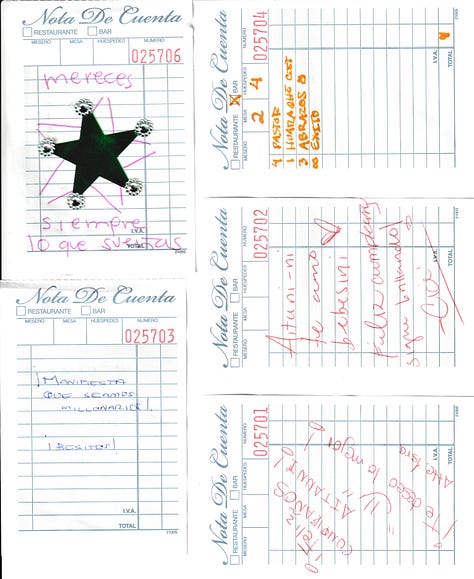 Nota De Cuenta
RESTAURANTE BAR
MESERO MESA HUESPEDES NUMERO
025706
mereces
siempre
lo que sueñas
I.V.A.
TOTAL
Nota De Cuenta
RESTAURANTE X BAR
MESERO MESA HUESPEDES NUMERO
2 4 025704
4 PASTOR
1 HUARACHE
3 ABRAZOS
∞ EXITO
I.V.A.
TOTAL
Nota De Cuenta
RESTAURANTE BAR
MESERO MESA HUESPEDES NUMERO
025702
Aituni-ni
te amo
bebesini
Feliz cumpleaños
sigue brillando!
I.V.A.
TOTAL
Nota De Cuenta
RESTAURANTE BAR
MESERO MESA HUESPEDES NUMERO
025703
¡MANIFIESTA
QUE SEAMOS
MILLONARIOS!
¡BESITOS!
I.V.A.
TOTAL
Nota De Cuenta
RESTAURANTE BAR
MESERO MESA HUESPEDES NUMERO
025701
¡Feliz
CUMPLEAÑOS
¡Te deseo lo mejor!
Atte Isra
I.V.A.
TOTAL